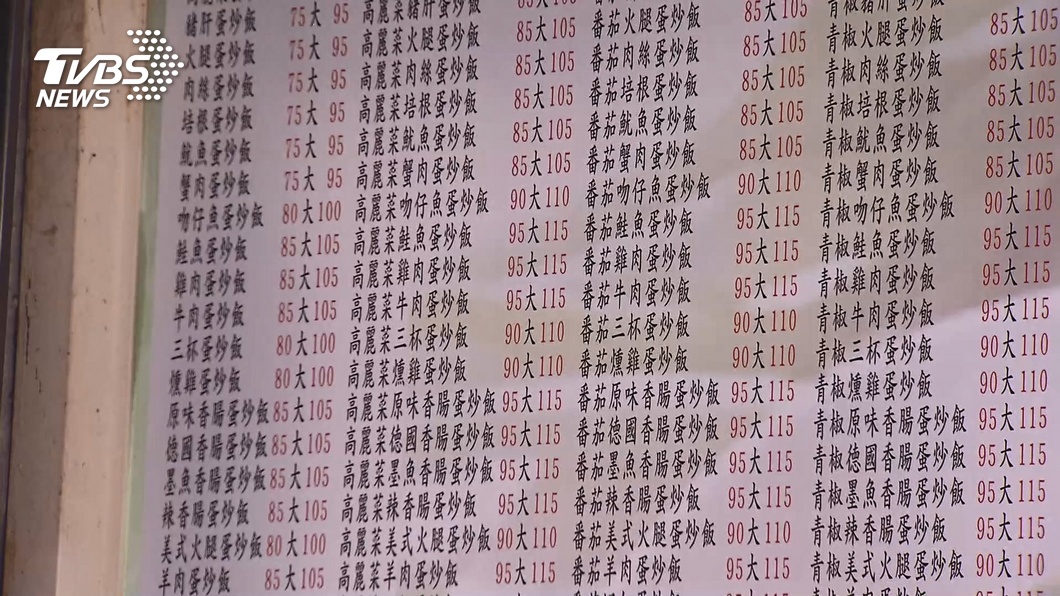 TVBS
NEWS
豬肝蛋炒飯 75大 95
火腿蛋炒飯 75大 95
肉絲蛋炒飯 75大 95
培根蛋炒飯 75大 95
魷魚蛋炒飯 75大 95
蟹肉蛋炒飯 75大 95
吻仔魚蛋炒飯 80大100
鮭魚蛋炒飯 85大105
雞肉蛋炒飯 85大105
牛肉蛋炒飯 85大105
三杯蛋炒飯 80大100
燻雞蛋炒飯 80大100
原味香腸蛋炒飯 85大105
德國香腸蛋炒飯 85大105
墨魚香腸蛋炒飯 85大105
辣香腸蛋炒飯 85大105
美式火腿蛋炒飯 80大100
羊肉蛋炒飯 85大105
高麗菜豬肝蛋炒飯 85大105
高麗菜火腿蛋炒飯 85大105
高麗菜肉絲蛋炒飯 85大105
高麗菜培根蛋炒飯 85大105
高麗菜魷魚蛋炒飯 85大105
高麗菜蟹肉蛋炒飯 85大105
高麗菜吻仔魚蛋炒飯 90大110
高麗菜鮭魚蛋炒飯 95大115
高麗菜雞肉蛋炒飯 95大115
高麗菜牛肉蛋炒飯 95大115
高麗菜三杯蛋炒飯 90大110
高麗菜燻雞蛋炒飯 90大110
高麗菜原味香腸蛋炒飯 95大115
高麗菜德國香腸蛋炒飯 95大115
高麗菜墨魚香腸蛋炒飯 95大115
高麗菜辣香腸蛋炒飯 95大115
高麗菜美式火腿蛋炒飯 90大110
高麗菜羊肉蛋炒飯 95大115
番茄火腿蛋炒飯 85大105
番茄肉絲蛋炒飯 85大105
番茄培根蛋炒飯 85大105
番茄魷魚蛋炒飯 85大105
番茄蟹肉蛋炒飯 85大105
番茄吻仔魚蛋炒飯 90大110
番茄鮭魚蛋炒飯 95大115
番茄雞肉蛋炒飯 95大115
番茄牛肉蛋炒飯 95大115
番茄三杯蛋炒飯 90大110
番茄燻雞蛋炒飯 90大110
番茄原味香腸蛋炒飯 95大115
番茄德國香腸蛋炒飯 95大115
番茄墨魚香腸蛋炒飯 95大115
番茄辣香腸蛋炒飯 95大115
番茄美式火腿蛋炒飯 90大110
番茄羊肉蛋炒飯 95大115
青椒豬肝蛋炒飯
青椒火腿蛋炒飯 85大105
青椒肉絲蛋炒飯 85大105
青椒培根蛋炒飯 85大105
青椒魷魚蛋炒飯 85大105
青椒蟹肉蛋炒飯 85大105
青椒吻仔魚蛋炒飯 90大110
青椒鮭魚蛋炒飯 95大115
青椒雞肉蛋炒飯 95大115
青椒牛肉蛋炒飯 95大115
青椒三杯蛋炒飯 90大110
青椒燻雞蛋炒飯 90大110
青椒原味香腸蛋炒飯 95大115
青椒德國香腸蛋炒飯 95大115
青椒墨魚香腸蛋炒飯 95大115
青椒辣香腸蛋炒飯 95大115
青椒美式火腿蛋炒飯 90大110